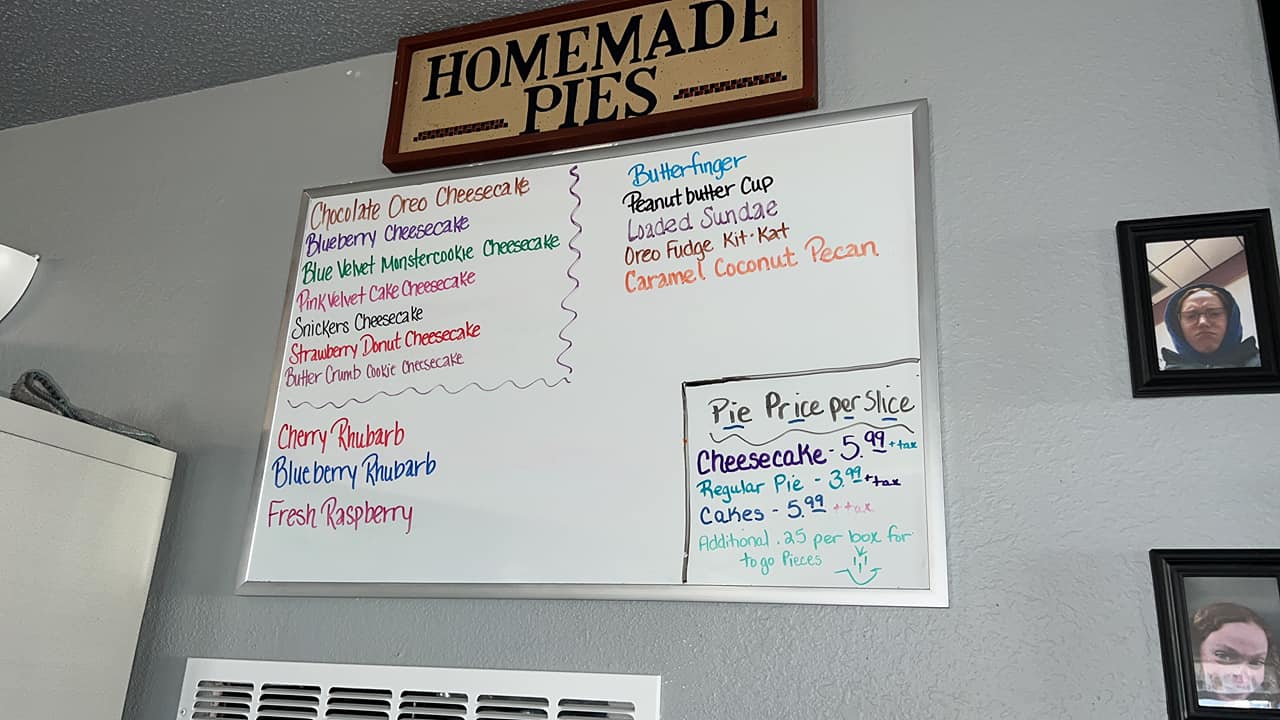 HOMEMADE
PIES
Chocolate Oreo Cheesecake
Blueberry Cheesecake
Blue Velvet Monstercookie Cheesecake
Pink Velvet Cake Cheesecake
Snickers Cheesecake
Strawberry Donut Cheesecake
Butter Crumb Cookie Cheesecake
Cherry Rhubarb
Blueberry Rhubarb
Fresh Raspberry
Butterfinger
Peanutbutter Cup
Loaded Sundae
Oreo Fudge Kit-Kat
Caramel Coconut Pecan
Pie Price per Slice
Cheesecake - 5.99 + tax
Regular Pie - 3.99 + tax
Cakes - 5.99 + tax
Additional .25 per box for
to go Pieces